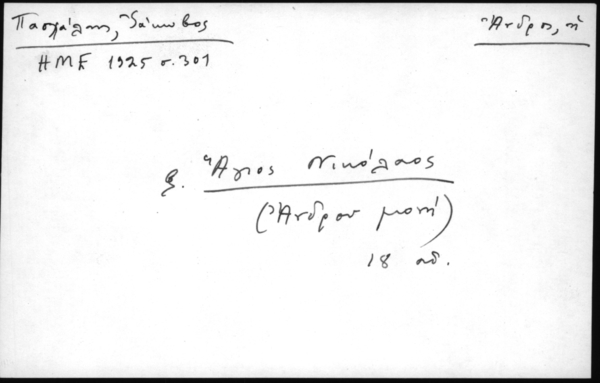 Πασχάλης, Ἰάκωβος
Ἄνδρος, ἡ
ΗΜΕ 1925 σ. 301
ξ. Ἅγιος Νικόλαος
(Ἄνδρου μονή)
18 αἰ.